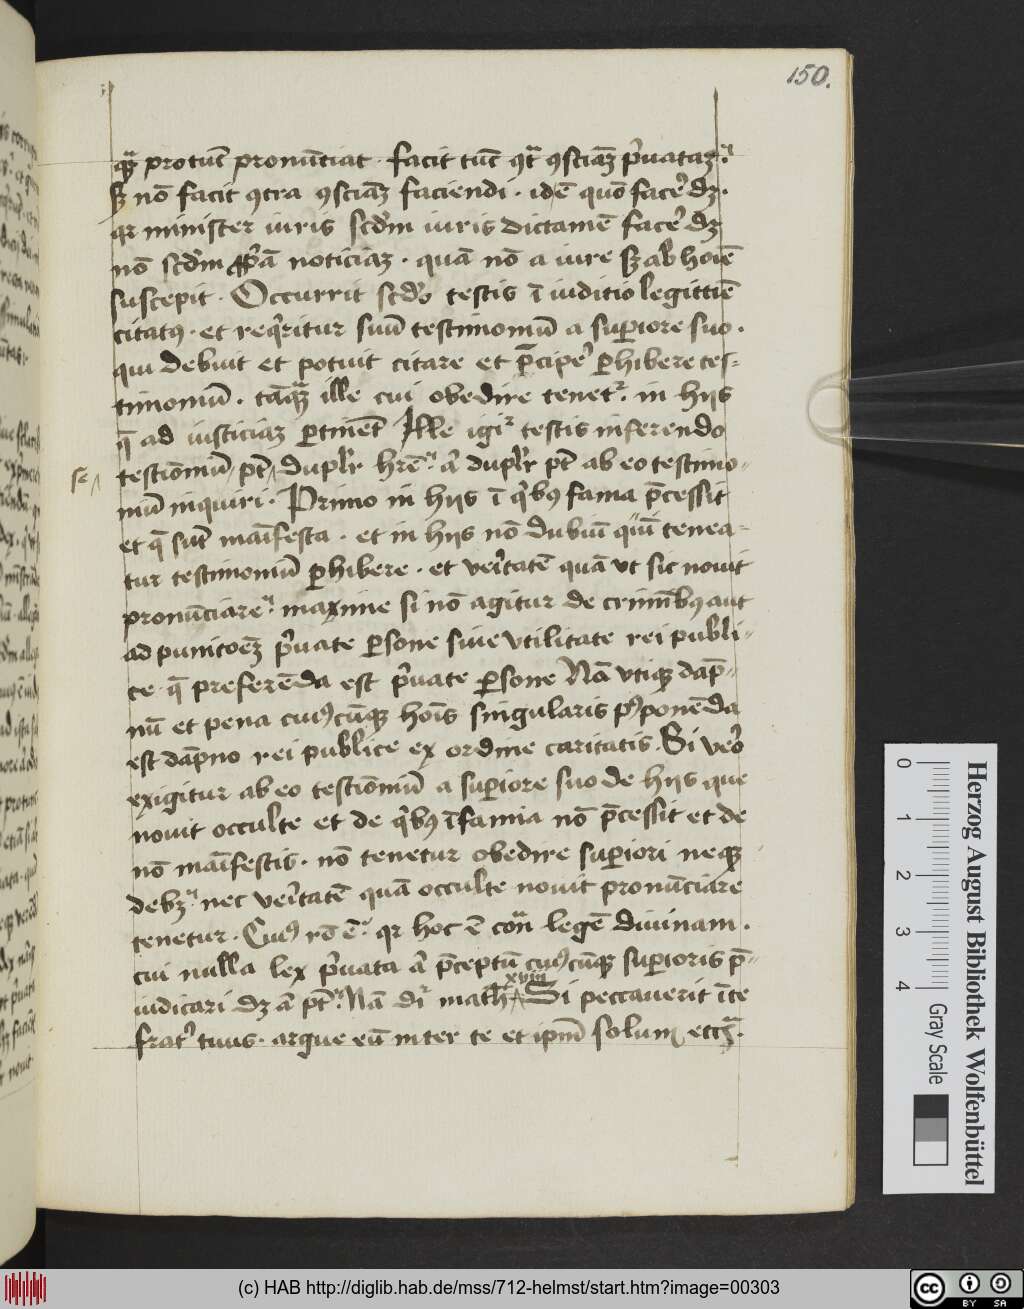 150.
protūc pronūtiat · facit tūc ꝯscīaꝫ p̾uataꝫ
nō facit ꝯtra ꝯsciāꝫ faciendi · idē quō fac̾e dꝫ ·
qr minister iuris scd̾m iuris dictamē fac̾e dꝫ
nō scd̾m noticiaꝫ · quā nō a iure sꝫ ab hoīe
suscepit · Occurrit scd̾o testis ī iuditio legittīe
citatꝰ · et reqͥritur suū testimoniū a suꝑiore suo ·
qui debuit et potuit citare et p̄cip̾e ꝑhibere tes-
timoniū · tāqꝫ ille cui obedire tenet᷑ · in hijs
q̄ ad iusticiaꝫ ꝑtinēt Ille igi᷑ testis inferendo
testiōniū pt̄ duplr̄ hr̄e · ā duplr̄ pt̄ ab eo testimo-
niū inquiri · Primo in hijs ī qͥbꝰ fama p̄cessit
et q̄ sūt maīfesta · et in hijs nō dubiū quī tenea-
tur testimoniū ꝑhibere · et ve̾itatē quā vt sic nouit
pronūciare · maxime si nō agitur de crimībꝰ aut
ad punitoēꝫ p̾uate ꝑsone siue vtilitate rei publi-
ce q̄ preferēda est p̾uate ꝑsone Nā vtiqꝫ dāp-
nū et pena cuiꝰcūqꝫ hoīs singularis pꝰponēda
est dāpno rei publice ex ordine caritatis · Si ve̾o
exigitur ab eo testiōniū a suꝑiore suo de hijs que
nouit occulte et de qͥbꝰ īfamia nō p̄cessit et de
nō maīfestis · nō tenetur obedire suꝑiori neqꝫ
debꝫ nec ve̾itatē quā occulte nouit pronūciare
tenetur · Cuiꝰ rō ē · qr hoc ē cont̄ legē diuinam ·
cui nulla lex p̾uata ā p̄ceptū cuiꝰcūqꝫ suꝑioris p̄-
iudicari dꝫ ā pt̄ · Nā d᷑i math xviij Si peccauerit ī te
frat̾ tuus · argue eū inter te et ip̄m solum etcꝫ ·
Herzog August Bibliothek Wolfenbüttel
0 1 2 3 4
Gray Scale
(c) HAB http://diglib.hab.de/mss/712-helmst/start.htm?image=00303
cc BY SA